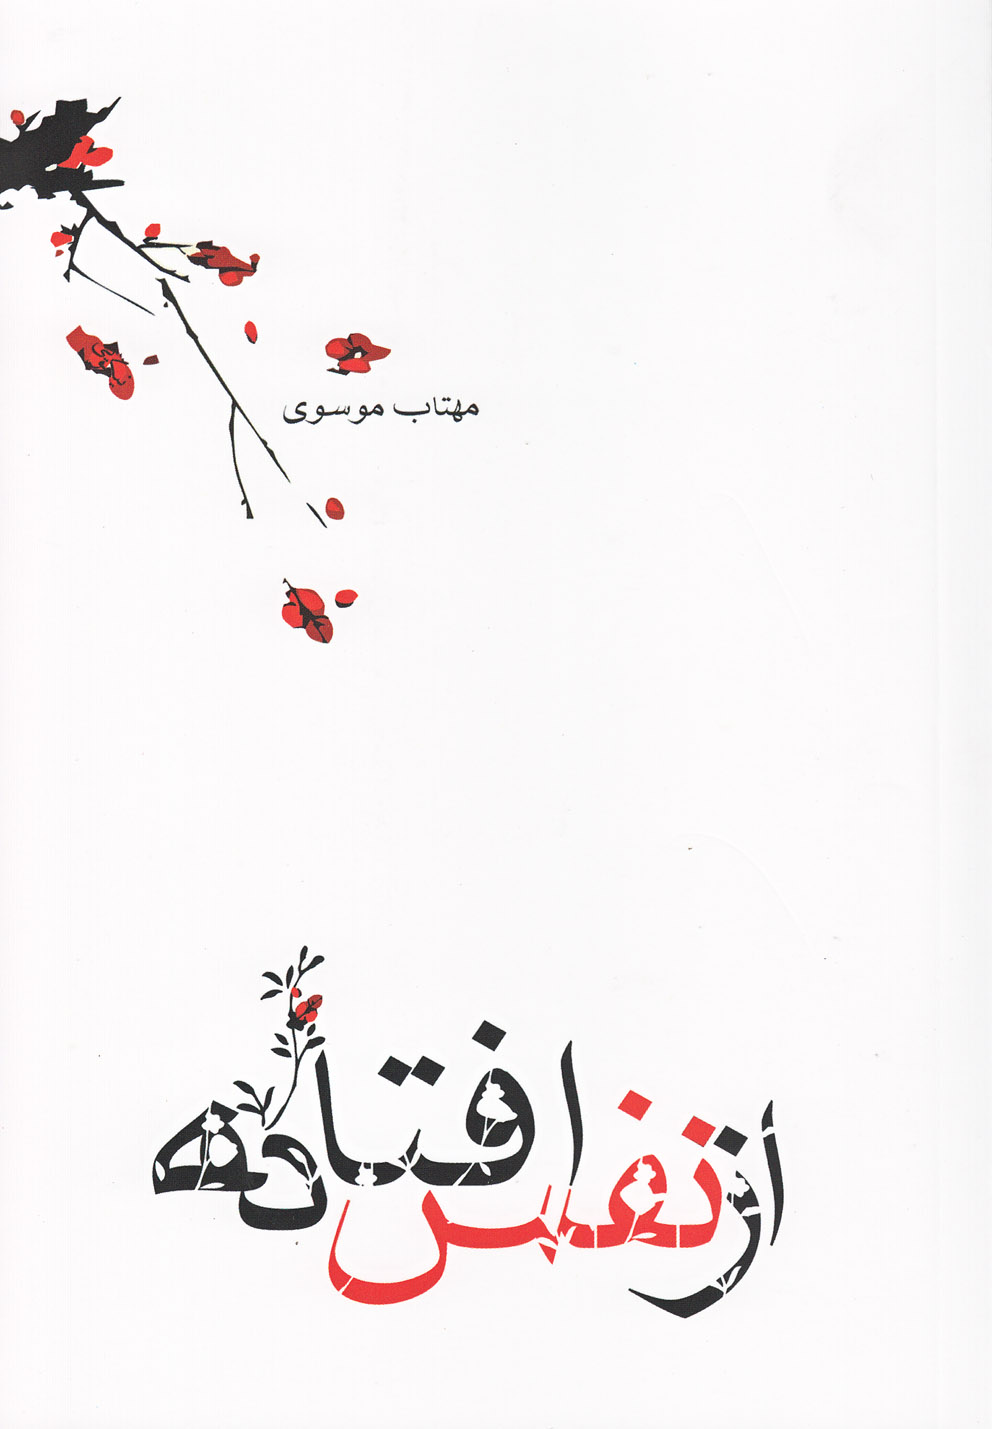 مهتاب موسوی
از نفس افتاده